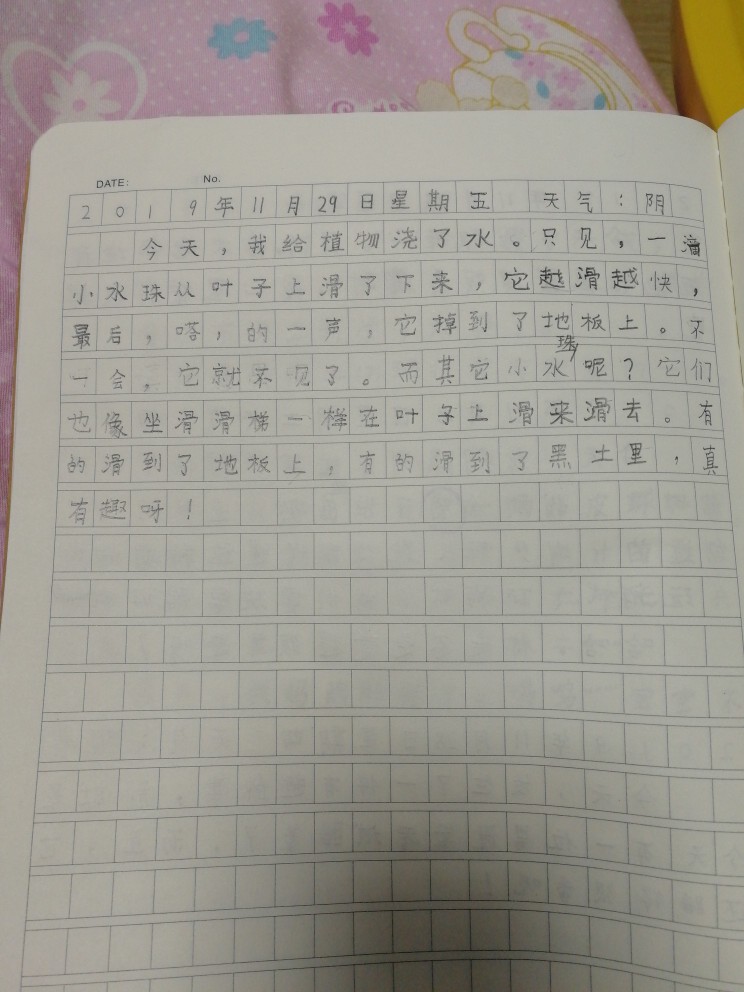 DATE: No.
2019年11月29日星期五 天气：阴
今天，我给植物浇了水。只见，一滴
小水珠从叶子上滑了下来，它越滑越快，
最后，嗒，的一声，它掉到了地板上。不
一会，它就不见了。而其它小水珠呢？它们
也像坐滑滑梯一样在叶子上滑来滑去。有
的滑到了地板上，有的滑到了黑土里，真
有趣呀！